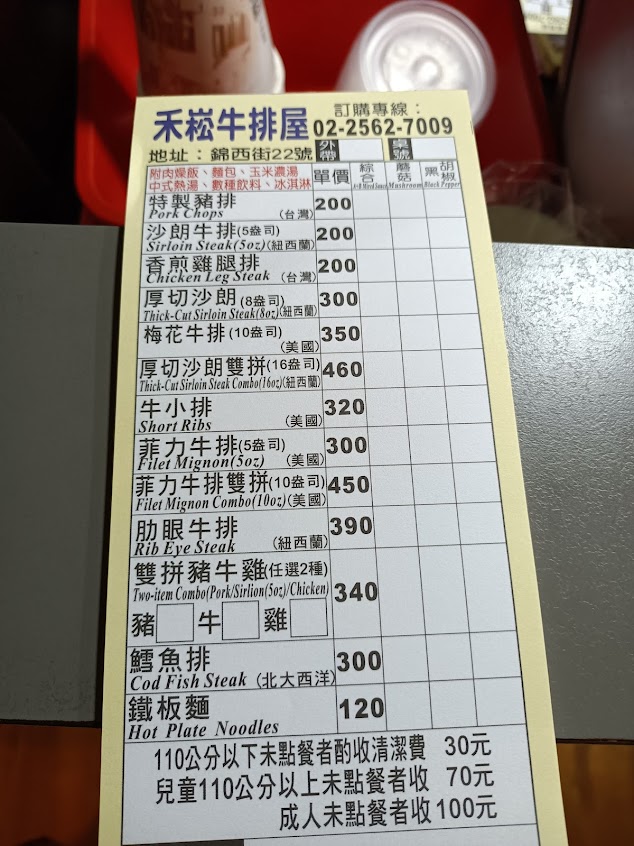 禾崧牛排屋
訂購專線：
02-2562-7009
地址：錦西街22號
外帶
桌號
附肉燥飯、麵包、玉米濃湯
中式熱湯、數種飲料、冰淇淋
單價
綜合
蘑菇 Mushroom
黑胡椒 Black Pepper
特製豬排 200
Pork Chops (台灣)
沙朗牛排(5盎司) 200
Sirloin Steak(5oz)(紐西蘭)
香煎雞腿排 200
Chicken Leg Steak (台灣)
厚切沙朗(8盎司) 300
Thick-Cut Sirloin Steak(8oz)(紐西蘭)
梅花牛排(10盎司) 350
(美國)
厚切沙朗雙拼(16盎司) 460
Thick-Cut Sirloin Steak Combo(16oz)(紐西蘭)
牛小排 320
Short Ribs (美國)
菲力牛排(5盎司) 300
Filet Mignon(5oz) (美國)
菲力牛排雙拼(10盎司) 450
Filet Mignon Combo(10oz)(美國)
肋眼牛排 390
Rib Eye Steak (紐西蘭)
雙拼豬牛雞(任選2種)
Two-item Combo(Pork/Sirlion(5oz)/Chicken)
340
豬 牛 雞
鱈魚排 300
Cod Fish Steak (北大西洋)
鐵板麵 120
Hot Plate Noodles
110公分以下未點餐者酌收清潔費 30元
兒童110公分以上未點餐者收 70元
成人未點餐者收100元